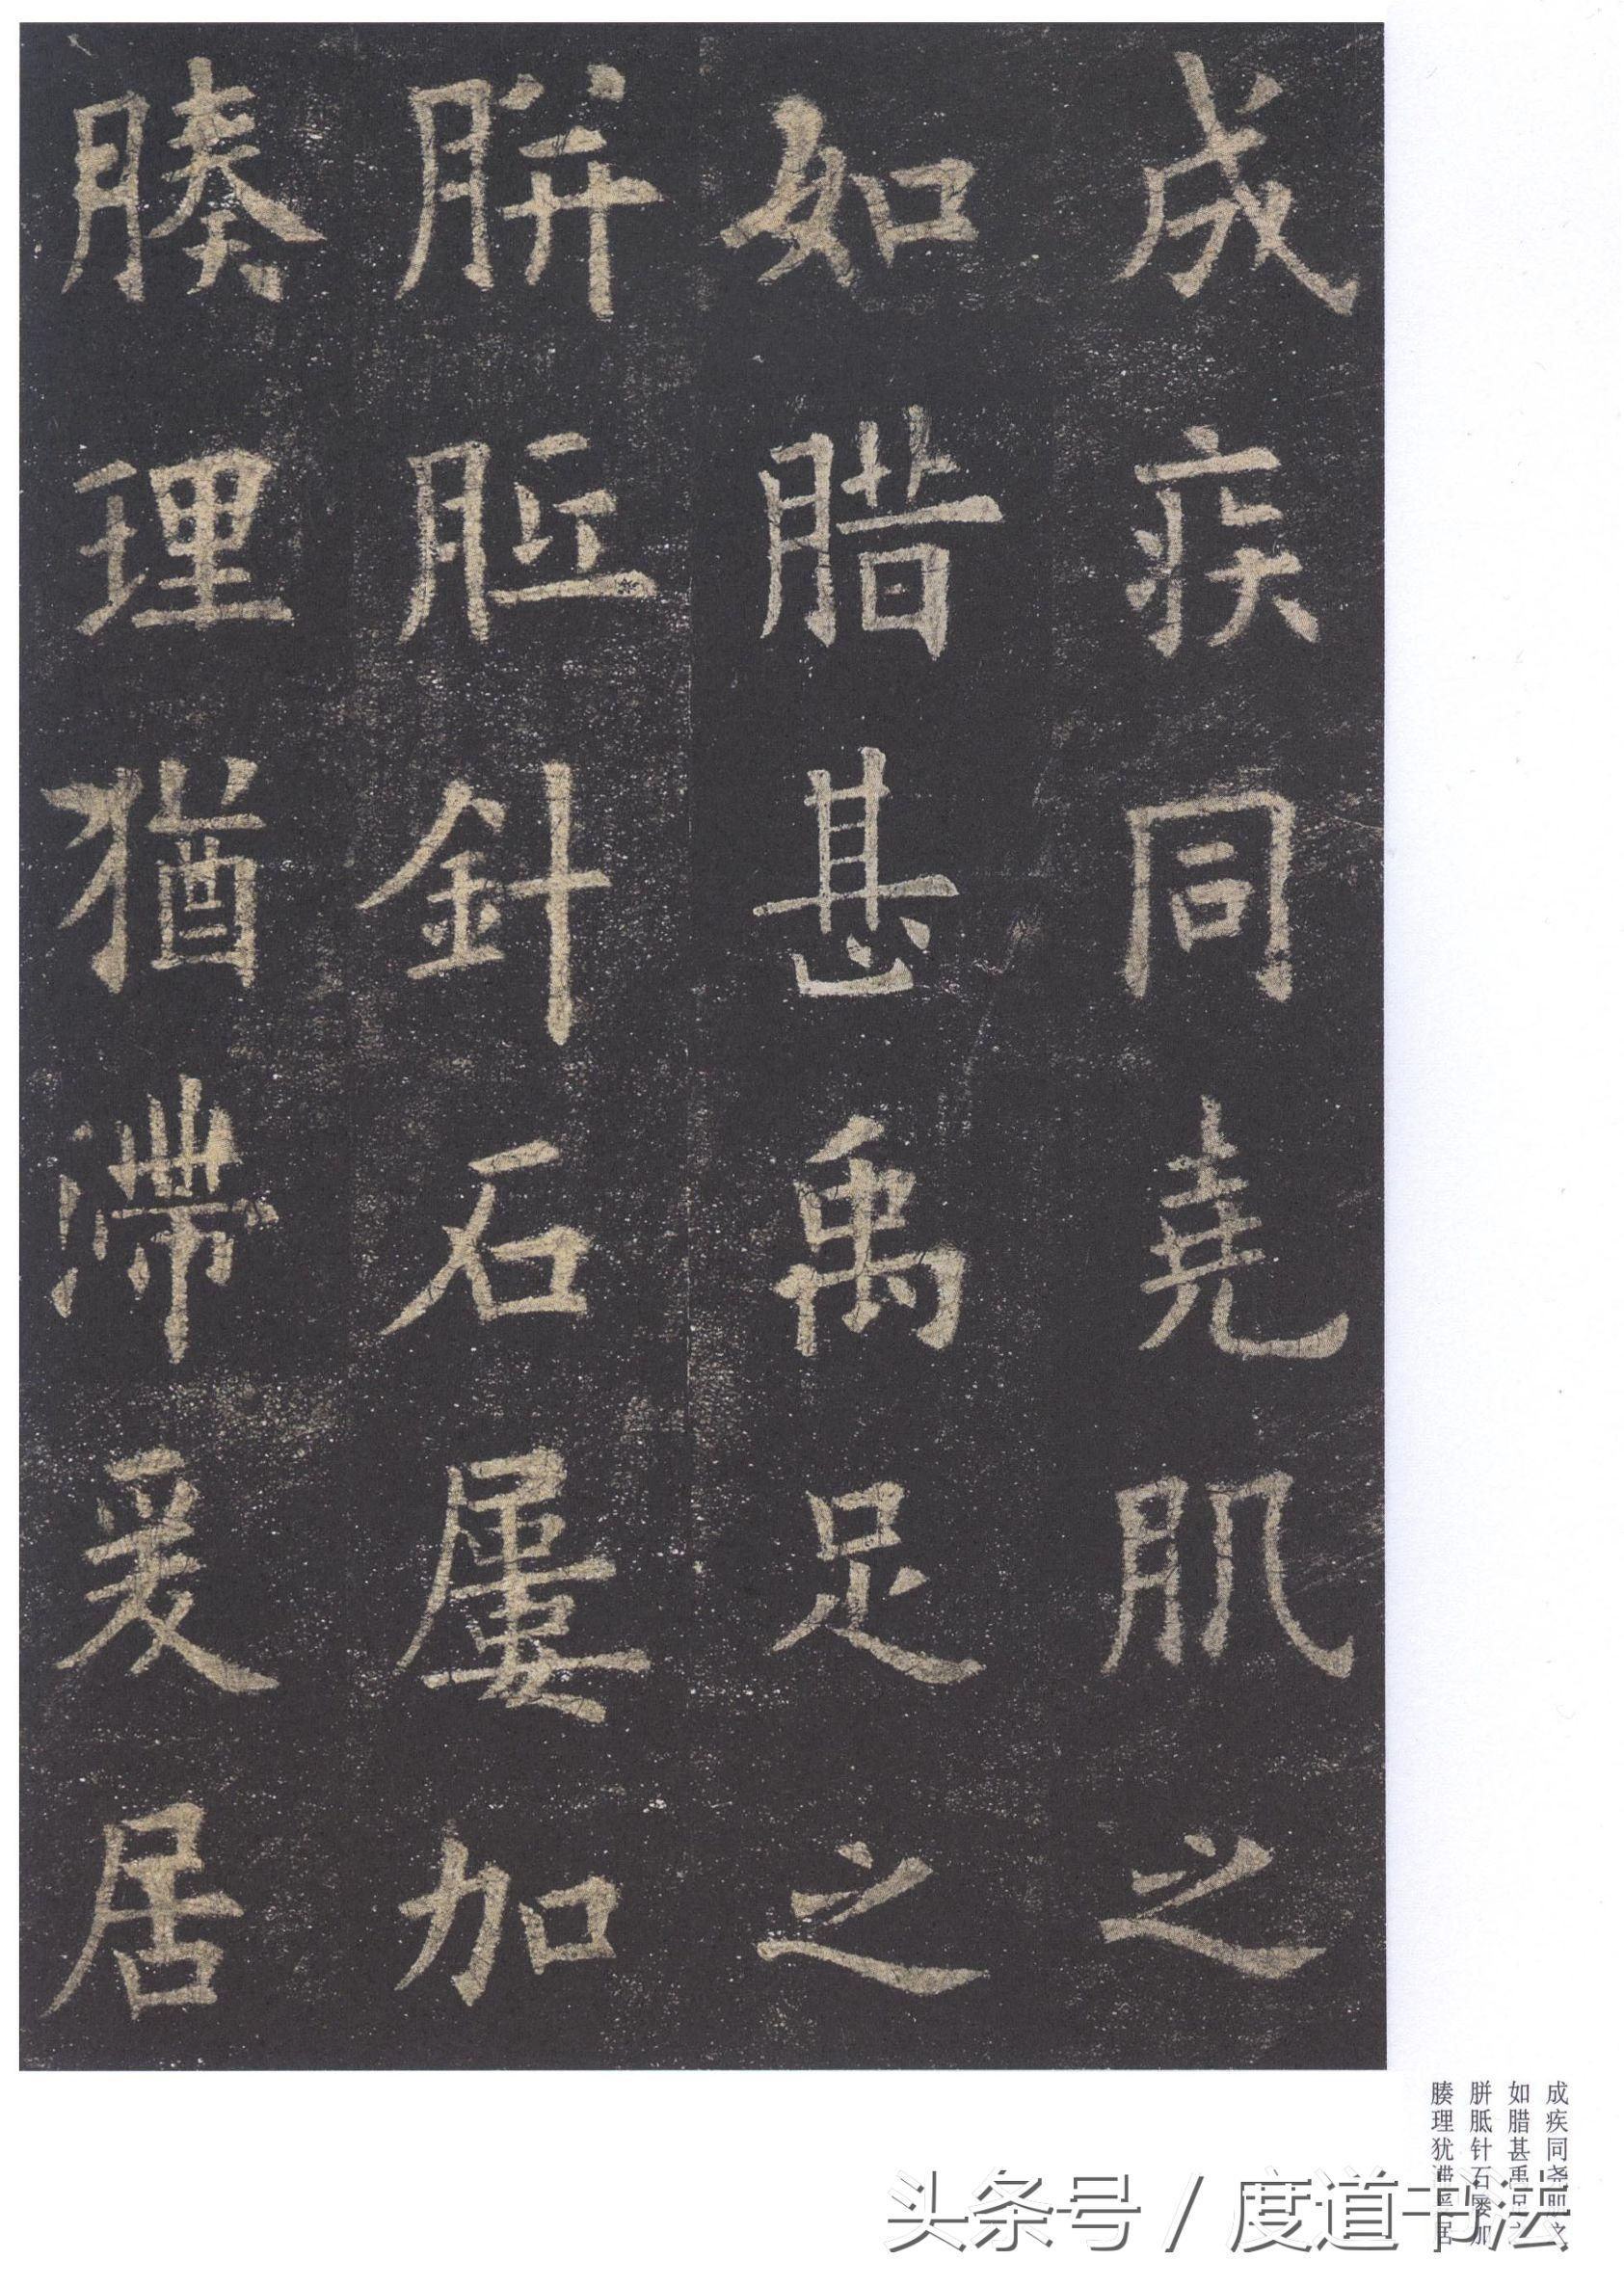 成疾同堯肌之
如腊甚禹足之
胼胝針石屢加
腠理猶滯爰居
成疾同尧肌之
如腊甚禹足之
胼胝针石屡加
腠理犹滞爰居
头条号 / 度道书法